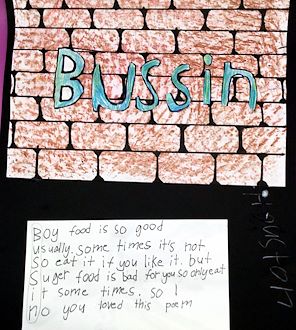 Bussin
Boy food is so good
usually. some times it's not
So eat it if you like it. but
Suger food is bad for you so only eat
it some times. so I
no you loved this poem